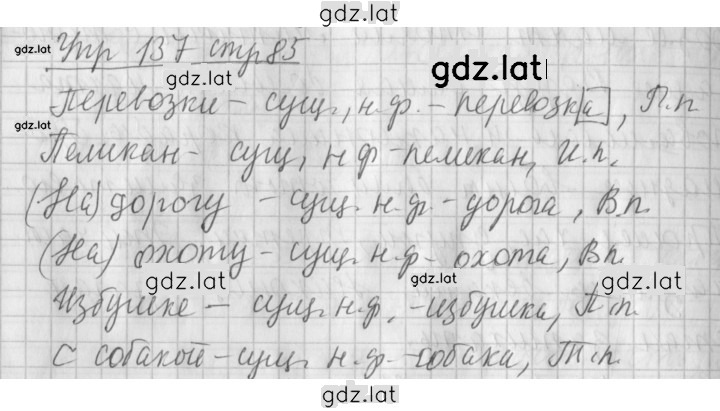 gdz.lat
gdz.lat Упр 137 стр 85
gdz.lat gdz.lat
Перевозки - сущ., н.ф. - перевозка, П.п
gdz.lat
Пеликан - сущ, н ф - пеликан, И.п.
(На) дорогу - сущ. н.ф. - дорога, В.п.
(На) охоту - сущ. н.ф - охота, В п.
gdz.lat gdz.lat
Избушке - сущ. н.ф. - избушка, П.п.
С собакой - сущ. н.ф. - собака, Т.п.
gdz.lat